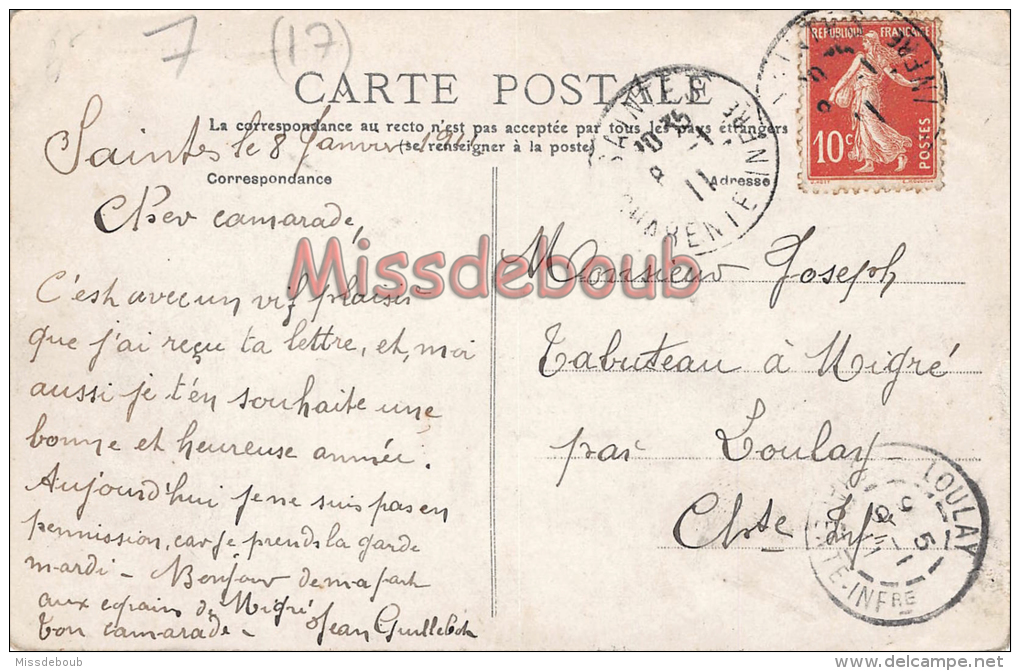 7
(17)
CARTE POSTALE
La correspondance au recto n'est pas acceptée par tous les pays étrangers
(se renseigner à la poste)
Correspondance
Adresse
REPUBLIQUE FRANÇAISE
10c
POSTES
SAINTES
10 35
8 -1
11
CHARENTE INFRE
Saintes le 8 Janvier
Cher camarade,
C'est avec un vif plaisir
que j'ai reçu ta lettre, et, moi
aussi je t'en souhaite une
bonne et heureuse année.
Aujourd'hui je ne suis pas en
permission, car je prends la garde
mardi - Bonjour de ma part
aux copains de Migré
Ton camarade - Jean
Monsieur Joseph
Tabuteau à Migré
par Loulay
Chte Infre
LOULAY
CHARENTE-INFRE
Missdeboub
Missdeboub
delcampe.net